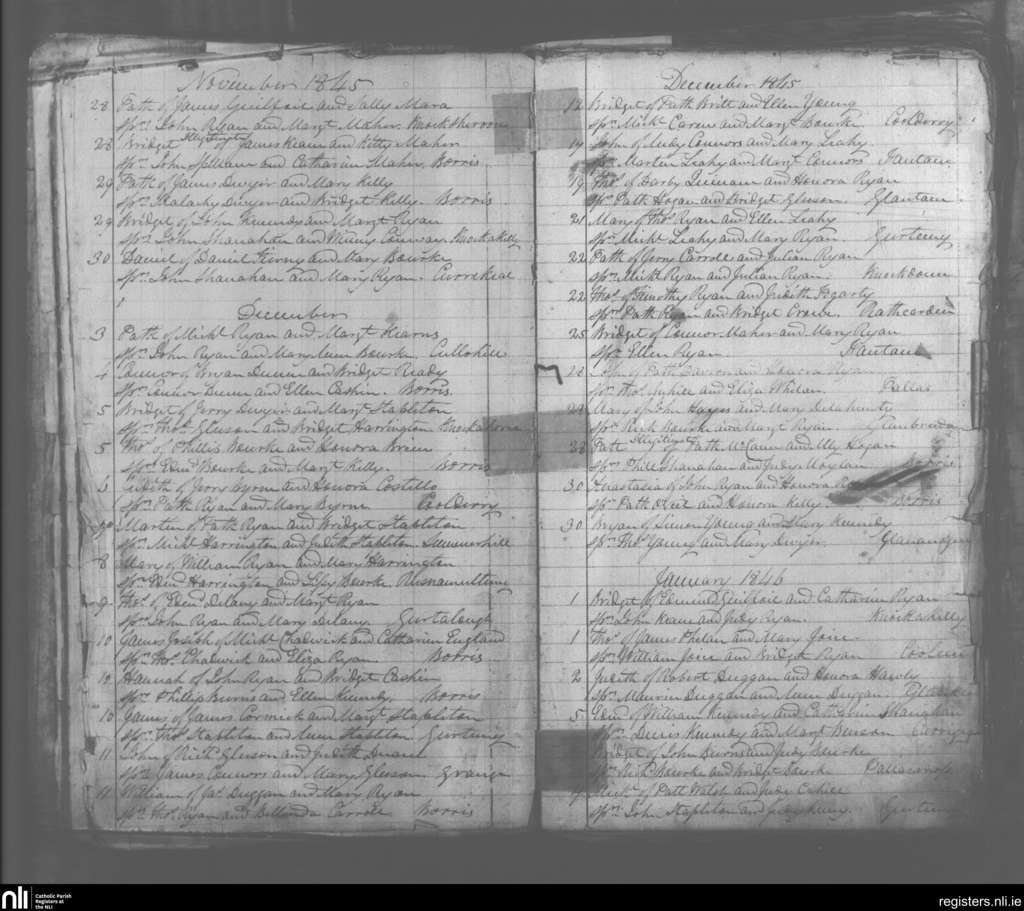 November 1845
28 Path of James Guilfoil and Sally Mara
Sprs John Ryan and Margt Maher.
28 Bridget Illegitimate of James Keane and Kitty Maher
Sprs John Spillane and Catharine Maher Borris
29 Path of James Dwyer and Mary Kelly
Sprs Malachy Dwyer and Bridget Kelly. Borris
29 Bridget of John Kennedy and Margt Ryan
Sprs John Shanahan and Winny Conway. Knockakelly
30 Daniel of Daniel Kirwy and Mary Bourke
Sprs John Shanahan and Mary Ryan. Currakeal
December
3 Path of Michl Ryan and Margt Kearns
Sprs John Ryan and Mary Anne Bourke. Cullohill
4 Connor of Bryan Dunne and Bridget Ready
Sprs Dunne and Ellen Cashin. Borris.
5 Bridget of Jerry Dwyer and Margt Stapleton
Sprs Thos Gleeson and Bridget Harrington
5 Thos of Phillip Bourke and Honora Brien
Sprs Edmd Bourke and Margt Kelly. Borris
6 Judith of Jerry Byrne and Honora Costillo
Sprs Path Ryan and Mary Byrne. CoolDerry
Martin of Path Ryan and Bridget Stapleton
Sprs Michl Harrington and Judith Stapleton. Summerhill
8 Mary of William Ryan and Mary Harrington
Sprs Edmd Harrington and Bourke Rusnamultine
9 Thos of Edmd Delany and Margt Ryan
Sprs John Ryan and Mary Delany. Gurtalough
10 James Joseph of Michl Chadwick and Catharine England
Sprs Thos Chadwick and Eliza Ryan. Borris
10 Hannah of John Ryan and Bridget Cashin
Sprs Phillip Burns and Ellen Kennedy. Borris
10 James of James Cormick and Margt Stapleton
Sprs Thos Stapleton and Anne Stapleton. Gurteeny
11 John of Richd Gleeson and Judith Duane
Sprs James Connors and Mary Gleeson. Grange
11 William of Jas Duggan and Mary Ryan
Sprs Thos Ryan and Bellinda Carroll Borris
December 1845
12 Bridget of Path Britt and Ellen Young
Sprs Michl Carew and Margt Bourke CoolDerry
17 John of Connors and Mary Leahy
Sprs Martin Leahy and Margt Connors Fantane
19 Thos of Darby Quinane and Honora Ryan
Sprs Path Hogan and Bridget Gleeson. Glantane
21 Mary of Thos Ryan and Ellen Leahy
Sprs Michl Leahy and Mary Ryan. Gurteeny
22 Path of Jerry Carroll and Julian Ryan
Sprs Michl Ryan and Julian Ryan. Knockdown
22 Thos of Timothy Ryan and Judith Fogarty
Sprs Path Ryan and Bridget Crowe. Rathcardin
25 Bridget of Connor Maher and Mary Ryan
Sprs Ellen Ryan. Fantane
28 John of Path Davison and Honora Ryan
Sprs Thos and Eliza Whelan Pallas
29 Mary of John Hayes and Mary Delahunty
Sprs Rich Bourke and Margt Ryan. Glanbreida
28 Path Illegitimate of Path McCann and Hogan
Sprs Phill Shanahan and Judy Moylan Borris
30 Anastatia of John Ryan and Honora
Sprs Path and Honora Kelly. Borris
30 Bryan of Simon Young and Mary Kennedy
Sprs Thos Young and Mary Dwyer.
January 1846
1 Bridget of Edmund Guilfoil and Catharine Ryan
Sprs John Keane and Judy Ryan. Knockakelly
1 Thos of James Phelan and Mary Joice.
Sprs William Joice and Bridget Ryan
2 Judith of Robert Duggan and Honora Hawly
Sprs Maurice Duggan and Anne Duggan.
5 Edmd of William Kennedy and Catharine Shanahan
Sprs Denis Kennedy and Margt Benson
Bridget of John and Judy Bourke
Sprs Richd Bourke and Bridget Bourke Pallas
Michl of Patt Walsh and Judy Cahill
Sprs John Stapleton and Judy
nli
Catholic Parish
Registers at
the NLI
registers.nli.ie